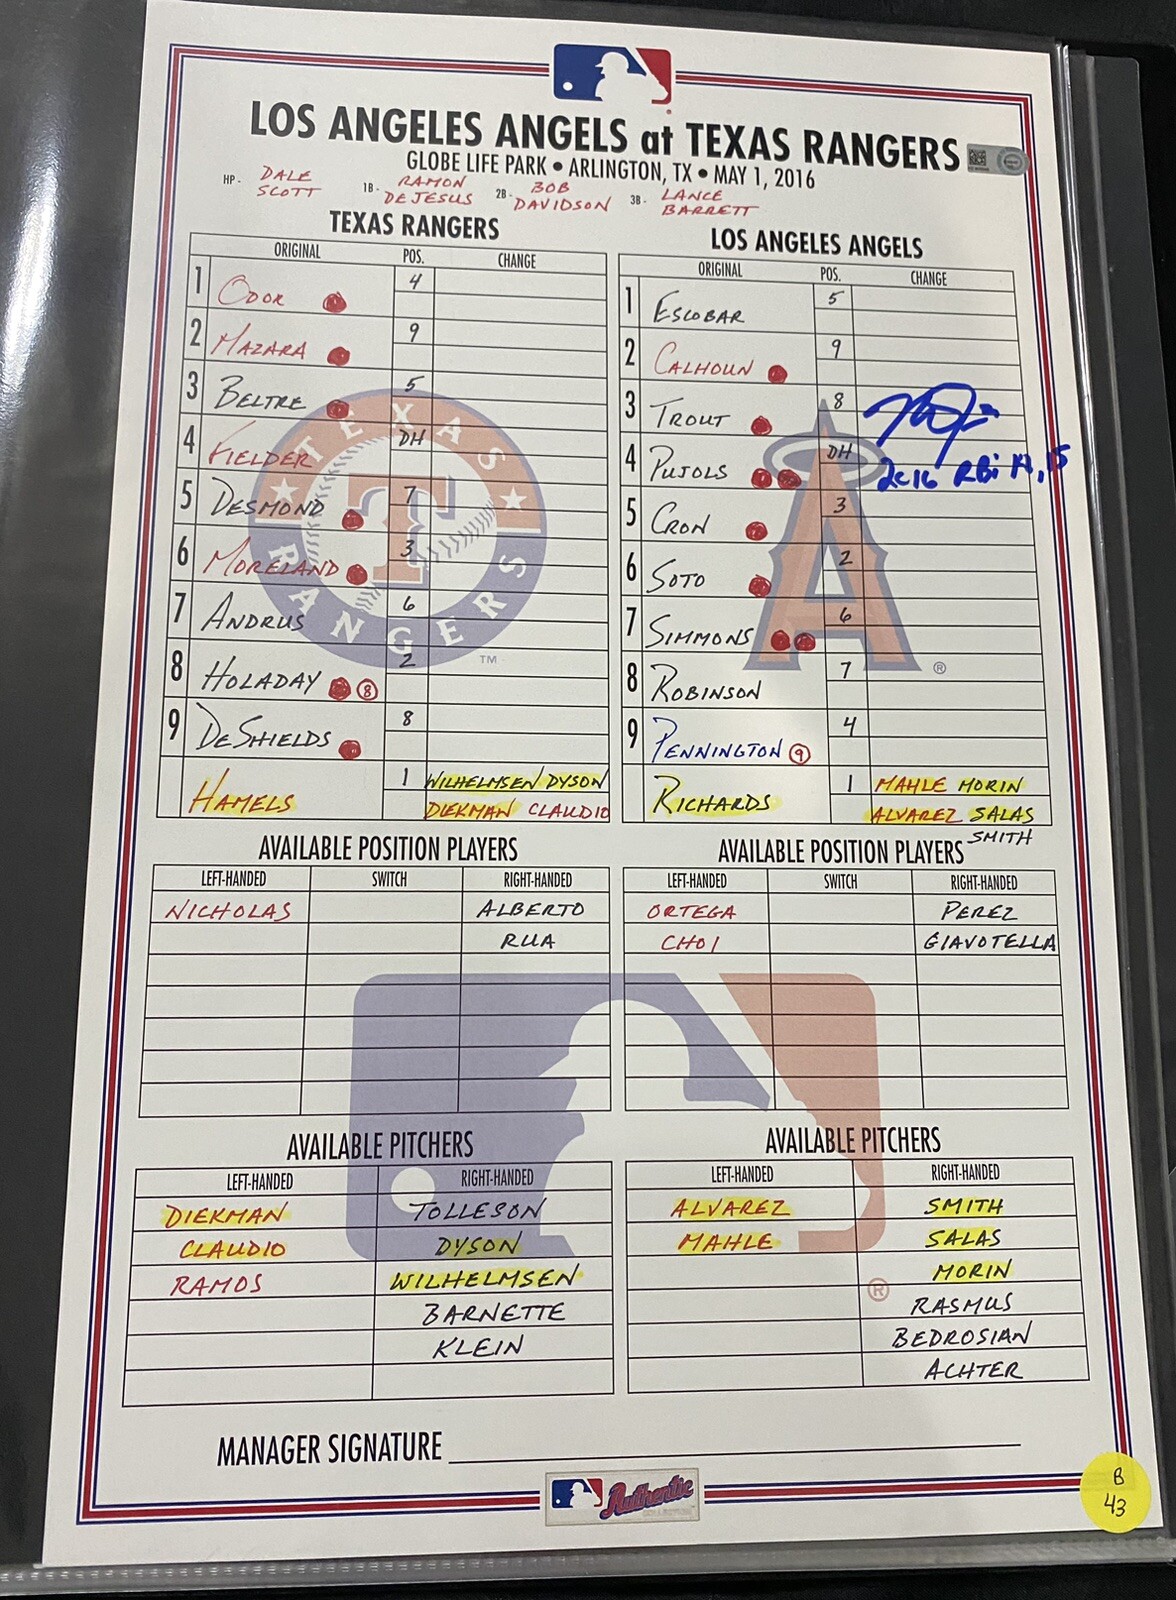 LOS ANGELES ANGELS at TEXAS RANGERS
GLOBE LIFE PARK • ARLINGTON, TX • MAY 1, 2016
HP - DALE SCOTT 1B - RAMON DEJESUS 2B - BOB DAVIDSON 3B - LANCE BARRETT
TEXAS RANGERS
ORIGINAL POS. CHANGE
1 ODOR 4
2 MAZARA 9
3 BELTRE 5
4 FIELDER DH
5 DESMOND 7
6 MORELAND 3
7 ANDRUS 6
8 HOLADAY 8 2
9 DESHIELDS 8
HAMELS 1 WILHELMSEN DYSON
DIEKMAN CLAUDIO
TEXAS
T
RANGERS
TM
LOS ANGELES ANGELS
ORIGINAL POS. CHANGE
1 ESCOBAR 5
2 CALHOUN 9
3 TROUT 8
4 PUJOLS DH
2016 RBI
5 CRON 3
6 SOTO 2
7 SIMMONS 6
8 ROBINSON 7
9 PENNINGTON 9 4
RICHARDS 1 MAHLE MORIN
ALVAREZ SALAS
SMITH
A
®
AVAILABLE POSITION PLAYERS
LEFT-HANDED SWITCH RIGHT-HANDED
NICHOLAS ALBERTO
RUA
AVAILABLE POSITION PLAYERS
LEFT-HANDED SWITCH RIGHT-HANDED
ORTEGA PEREZ
CHOI GIAVOTELLA
AVAILABLE PITCHERS
LEFT-HANDED RIGHT-HANDED
DIEKMAN TOLLESON
CLAUDIO DYSON
RAMOS WILHELMSEN
BARNETTE
KLEIN
AVAILABLE PITCHERS
LEFT-HANDED RIGHT-HANDED
ALVAREZ SMITH
MAHLE SALAS
MORIN
® RASMUS
BEDROSIAN
ACHTER
MANAGER SIGNATURE
Authentic
B
43